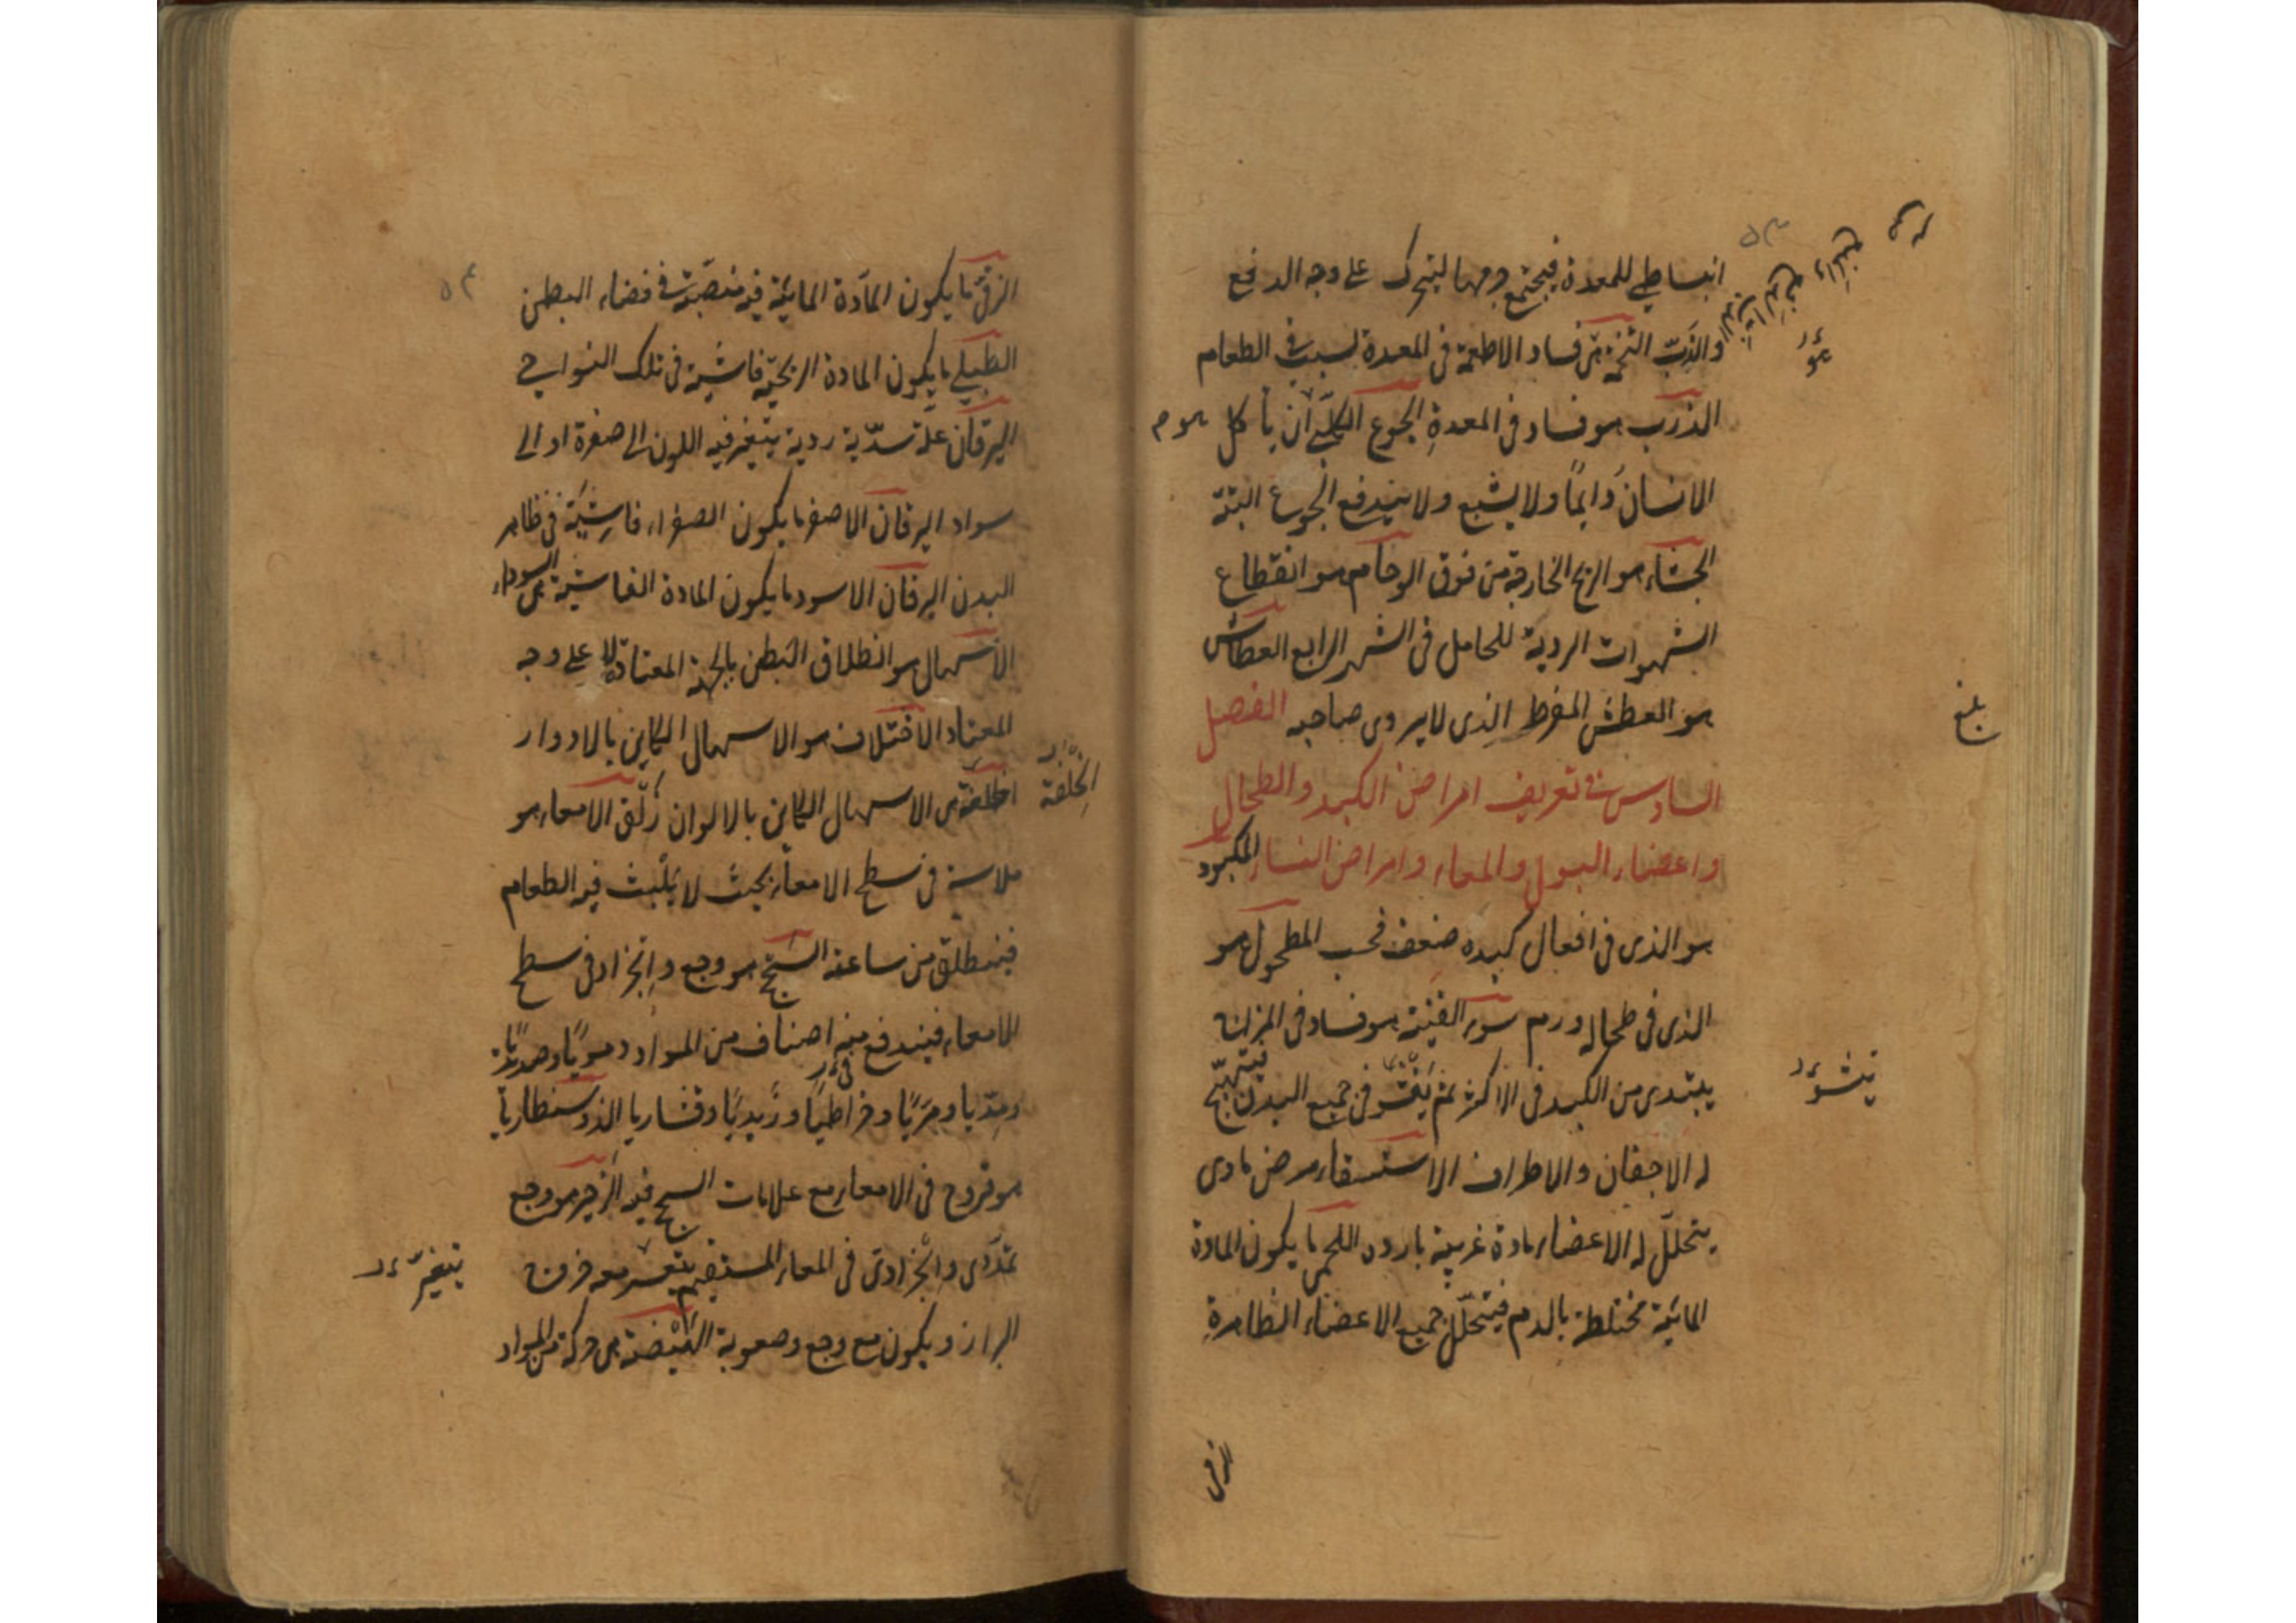 انبساطي للمعدة فيجتمع وجهها ليتحرك على وجه الدفع
والذرب التخمة هى فساد الاطعمة فى المعدة لسبب فى الطعام
الذرب هو فساد فى المعدة الجوع الكلبى ان يأكل
الانسان دايمًا ولا يشبع ولا يندفع الجوع البتة
الجشاء هو الريح الخارجة من فوق الوحام هو انقطاع
الشهوات الردية للحامل فى الشهر الرابع العطاش
هو العطش المفرط الذى لا يروى صاحبه الفصل
السادس فى تعريف امراض الكبد والطحال
واعضاء البول والمعاء وامراض النساء المكبود
هو الذى فى افعال كبده ضعف فحسب المطحول هو
الذى فى طحاله ورم سوء القنية هو فساد فى المزاج
يبتدى من الكبد فى الاكثر ثم يفشو فى جميع البدن فيتهيج
له الاجفان والاطراف الاستسقاء مرض مادى
يتخلل له الاعضاء مادة غريبة باردة اللحمى ما يكون المادة
المائية مختلطة بالدم فيتخلل جميع الاعضاء الظاهرة
بلغ
الزقى
٥٤
الزقى ما يكون المادة المائية فيه منصبة فى فضاء البطن
الطبلى ما يكون المادة الريحية فاشية فى تلك النواحى
اليرقان علة سدية ردية يتغير فيه اللون الى صفرة او الى
سواد اليرقان الاصفر ما يكون الصفراء فاشية فى ظاهر
البدن اليرقان الاسود ما يكون المادة الفاشية هى السوداء
الاسهال هو انطلاق البطن بالجهة المعتادة لا على وجه
المعتاد الاختلاف هو الاسهال الكاين بالادوار
الخلفة هى الاسهال الكاين بالالوان زلق الامعاء هو
ملاسة فى سطح الامعاء بحيث لا يلبث فيه الطعام
فينطلق من ساعته السحج هو وجع وانجراد فى سطح
الامعاء فيندفع منه اصناف من المواد دمويا وصديديا
ومديا ومريا وخراطيا وزبديا وقشاريا الذوسنطاريا
هو قروح فى الامعاء مع علامات السحج فيه الزحير هو وجع
تمددى وانجرادى فى المعاء المستقيم يتعسر معه خروج
البراز ويكون مع وجع وصعوبة الهيضة هى حركة من المواد
الخلفة